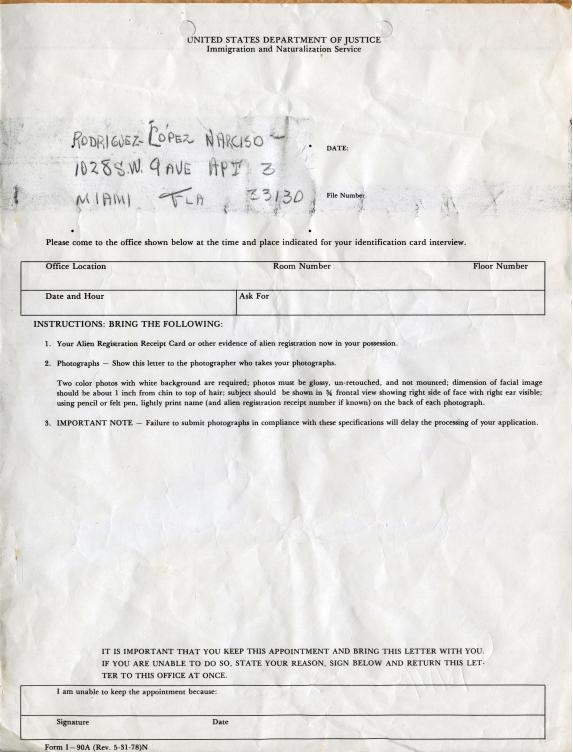 UNITED STATES DEPARTMENT OF JUSTICE
Immigration and Naturalization Service
RODRIGUEZ-LÓPEZ NARCISO
1028 S.W. 9 AVE APT 3
MIAMI FLA 33130
DATE:
File Number
Please come to the office shown below at the time and place indicated for your identification card interview.
Office Location Room Number Floor Number
Date and Hour Ask For
INSTRUCTIONS: BRING THE FOLLOWING:
1. Your Alien Registration Receipt Card or other evidence of alien registration now in your possession.
2. Photographs — Show this letter to the photographer who takes your photographs.
Two color photos with white background are required; photos must be glossy, un-retouched, and not mounted; dimension of facial image
should be about 1 inch from chin to top of hair; subject should be shown in ¾ frontal view showing right side of face with right ear visible;
using pencil or felt pen, lightly print name (and alien registration receipt number if known) on the back of each photograph.
3. IMPORTANT NOTE — Failure to submit photographs in compliance with these specifications will delay the processing of your application.
IT IS IMPORTANT THAT YOU KEEP THIS APPOINTMENT AND BRING THIS LETTER WITH YOU.
IF YOU ARE UNABLE TO DO SO, STATE YOUR REASON, SIGN BELOW AND RETURN THIS LET-
TER TO THIS OFFICE AT ONCE.
I am unable to keep the appointment because:
Signature Date
Form I-90A (Rev. 5-31-78)N